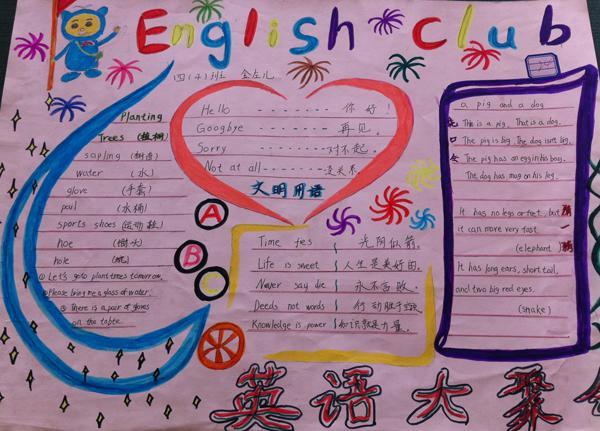 English club
四(4)班
Planting
Trees (植树)
sapling (树苗)
water (水)
glove (手套)
pail (水桶)
sports shoes (运动鞋)
hoe
hole
① Let's go to plant trees tomorrow.
② Please bring me a glass of water.
③ There is a pair of gloves
on the table.
Hello -------- 你好!
Googbye -------- 再见。
Sorry -------- 对不起。
Not at all -------- 没关系。
文明用语
A
B
C
Time flies 光阴似箭。
Life is sweet 人生是美好的。
Never say die 永不言败。
Deeds not words 行动胜于空谈
Knowledge is power 知识就是力量。
a pig and a dog
This is a pig. That is a dog.
The pig is big. The dog isn't big.
The pig has an egg in his bag.
The dog has mug on his leg.
It has no legs or feet, but
it can move very fast
(elephant)
It has long ears, short tail,
and two big red eyes.
(snake)
英语大聚